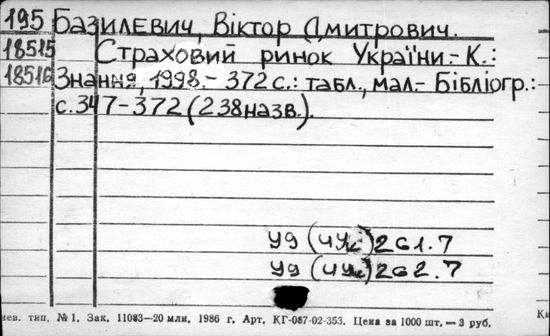 195 Базилевич, Віктор Дмитрович.
18515 Страховий ринок України.- К.:
18516 Знання, 1998.- 372 с.: табл., мал.- Бібліогр.:
с.347-372 (238назв.).
У9 (4Ук) 261.7
У9 (4Ук) 262.7
иев. тип. № 1. Зак. 11083—20 млн. 1986 г. Арт. КГ-087-02-353. Цена за 1000 шт. — 3 руб.